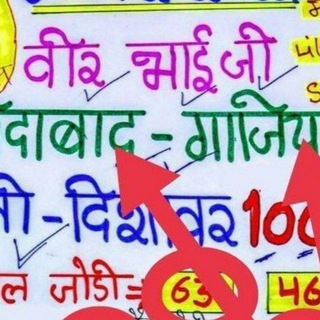 वीर भाई जी
दाबाद - गाजिय
ी - दिशावर 100
ल जोडी = 63 46